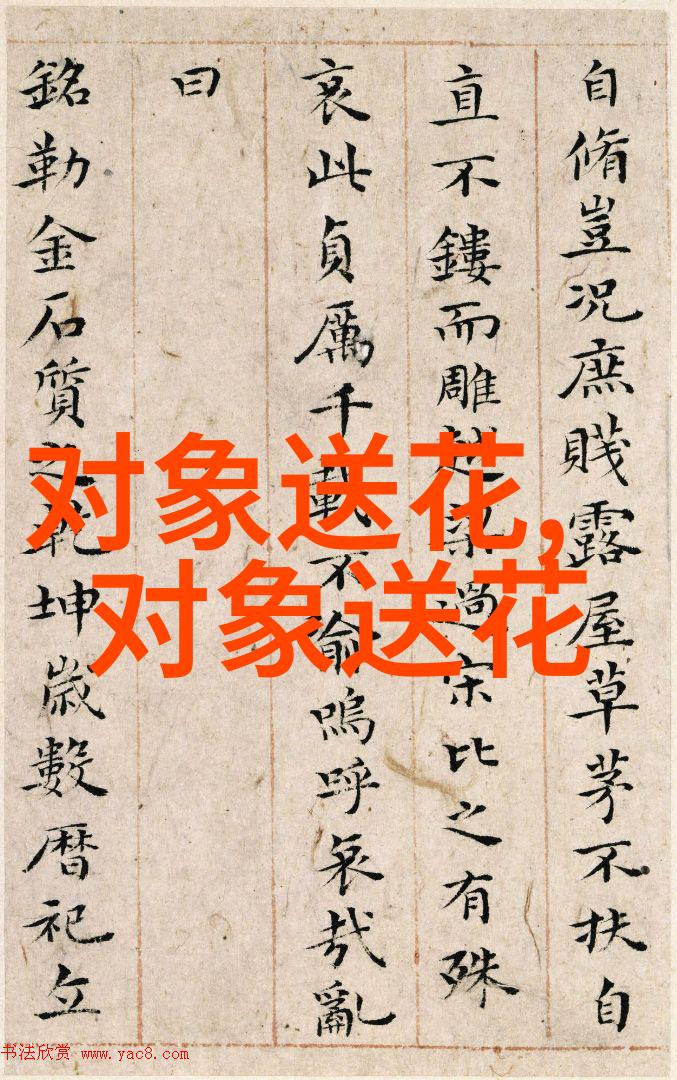 自脩豈況庶賤露屋草茅不扶自
直不鏤而雕越梁過宋比之有殊
哀此貞厲千載不渝嗚呼哀哉亂
曰
銘勒金石質之乾坤歲數暦祀立
对象送花,
对象送花
书法欣赏 www.yac8.com